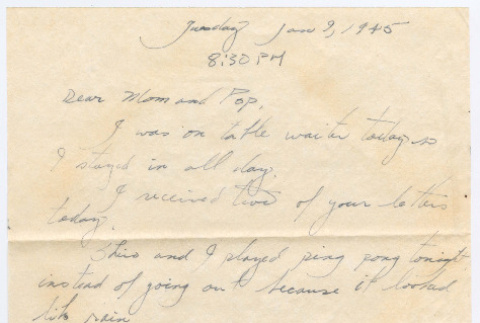 Tuesday Jan 9, 1945
8:30 PM
Dear Mom and Pop,
I was on table waiter today so
I stayed in all day.
I received two of your letters
today.
Shiro and I played ping pong tonight
instead of going out because it looked
like rain